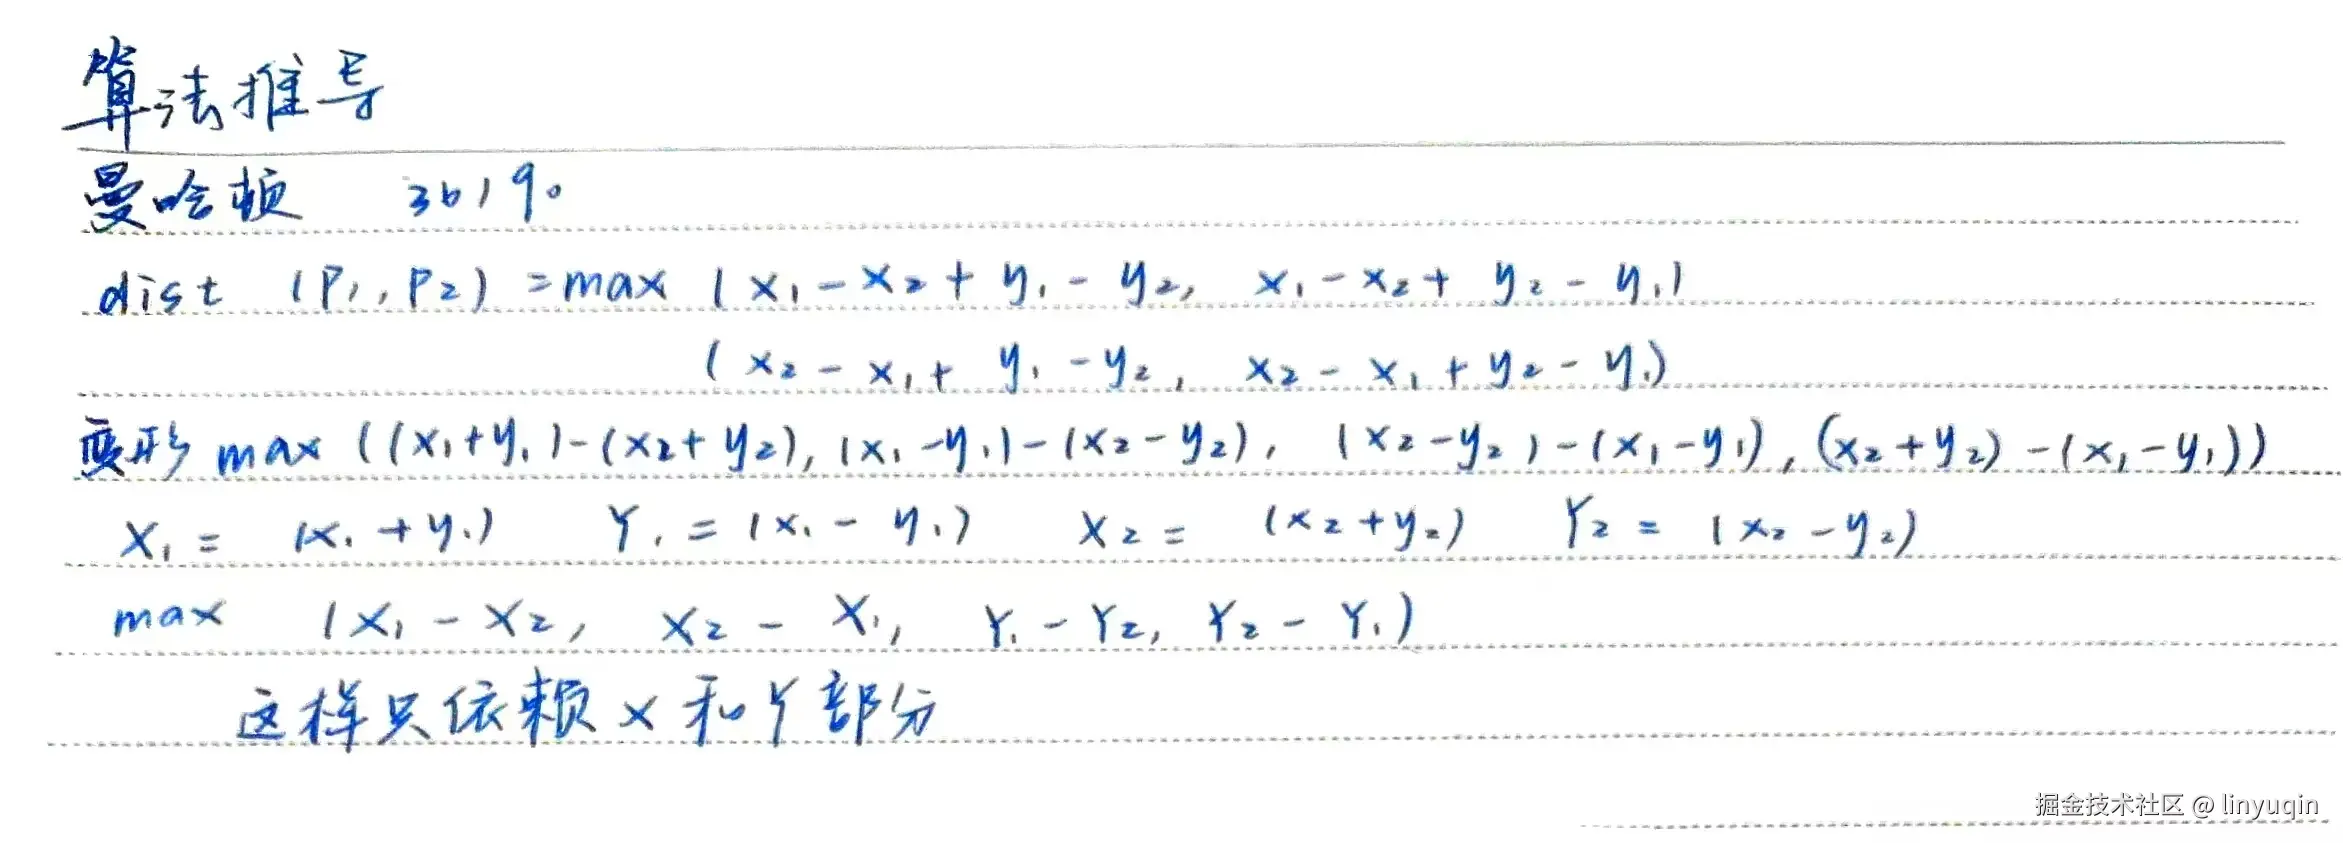 算法推导
曼哈顿 3619。
dist (P₁,P₂) = max (x₁-x₂+y₁-y₂, x₁-x₂+y₂-y₁)
(x₂-x₁+y₁-y₂, x₂-x₁+y₂-y₁)
变形 max ((x₁+y₁)-(x₂+y₂), (x₁-y₁)-(x₂-y₂), (x₂-y₂)-(x₁-y₁), (x₂+y₂)-(x₁-y₁))
X₁ = (x₁+y₁) Y₁ = (x₁-y₁) X₂ = (x₂+y₂) Y₂ = (x₂-y₂)
max (X₁-X₂, X₂-X₁, Y₁-Y₂, Y₂-Y₁)
这样只依赖X和Y部分
掘金技术社区 @ linyuqin